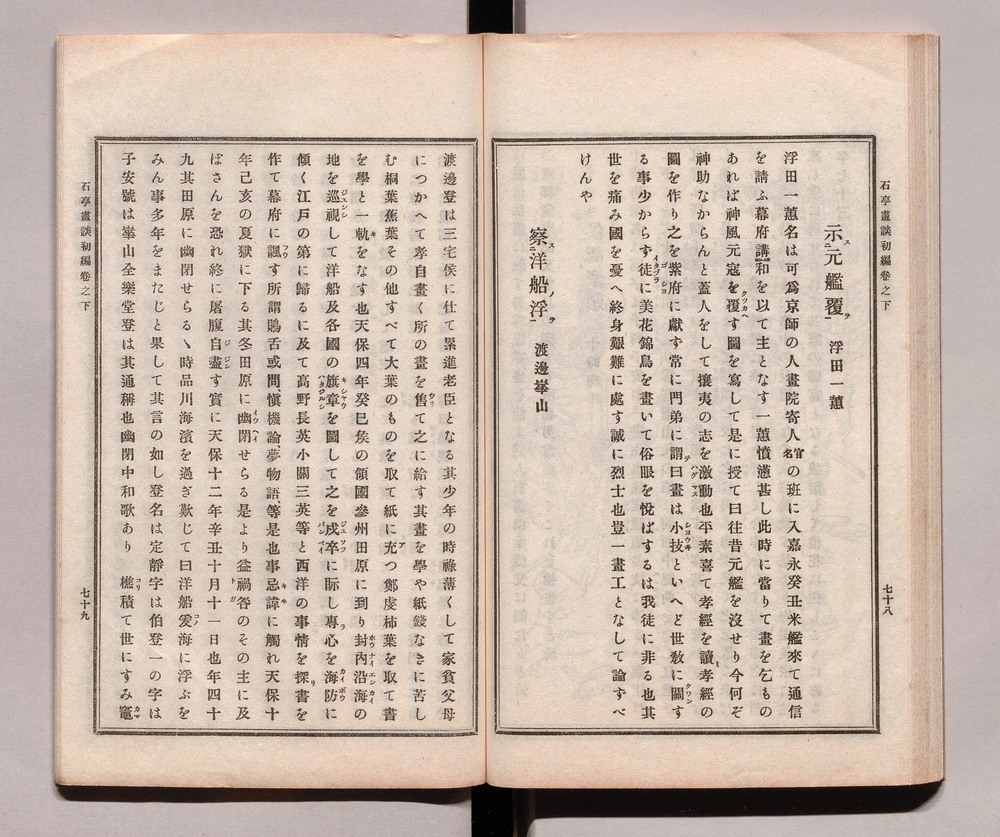 石亭畫談初編卷之下
七十八
示元艦覆 浮田一蕙
浮田一蕙名は可爲京師の人畫院寄人官名の班に入嘉永癸丑米艦來て通信
を請ふ幕府講和を以て主となす一蕙憤懣甚し此時に當りて畫を乞もの
あれば神風元寇を覆す圖を寫して是に授て曰往昔元艦を沒せり今何ぞ
神助なからんと蓋人をして攘夷の志を激動也平素喜て孝經を讀孝經の
圖を作り之を紫府に獻ず常に門弟に謂曰畫は小技といへど世敎に關す
る事少からず徒に美花錦鳥を畫いて俗眼を悅ばするは我徒に非る也其
世を痛み國を憂へ終身艱難に處す誠に烈士也豈一畫工となして論ずべ
けんや
察洋船浮 渡邊崋山
渡邊登は三宅侯に仕て累進老臣となる其少年の時祿薄くして家貧父母
につかへて孝自畫く所の畫を售て之に給す其畫を學や紙錢なきに苦し
む桐葉蕉葉その他すべて大葉のものを取て紙に充つ鄭虔柿葉を取て書
を學と一軌をなす也天保四年癸巳矦の領國參州田原に到り封內沿海の
地を巡視して洋船及各國の旗章を圖して之を戍卒に眎し專心を海防に
傾く江戶の第に歸るに及て高野長英小關三英等と西洋の事情を探書を
作て幕府に諷す所謂鴃舌或問愼機論夢物語等是也事忌諱に觸れ天保十
年己亥の夏獄に下る其冬田原に幽閉せらる是より益禍咎のその主に及
ばさんを恐れ終に屠腹自盡す實に天保十二年辛丑十月十一日也年四十
九其田原に幽閉せらるゝ時品川海濱を過ぎ歎じて曰洋船爰海に浮ぶを
みん事多年をまたじと果して其言の如し登名は定靜字は伯登一の字は
子安號は崋山全樂堂登は其通稱也幽閉中和歌あり 樵積て世にすみ竈
石亭畫談初編卷之下
七十九